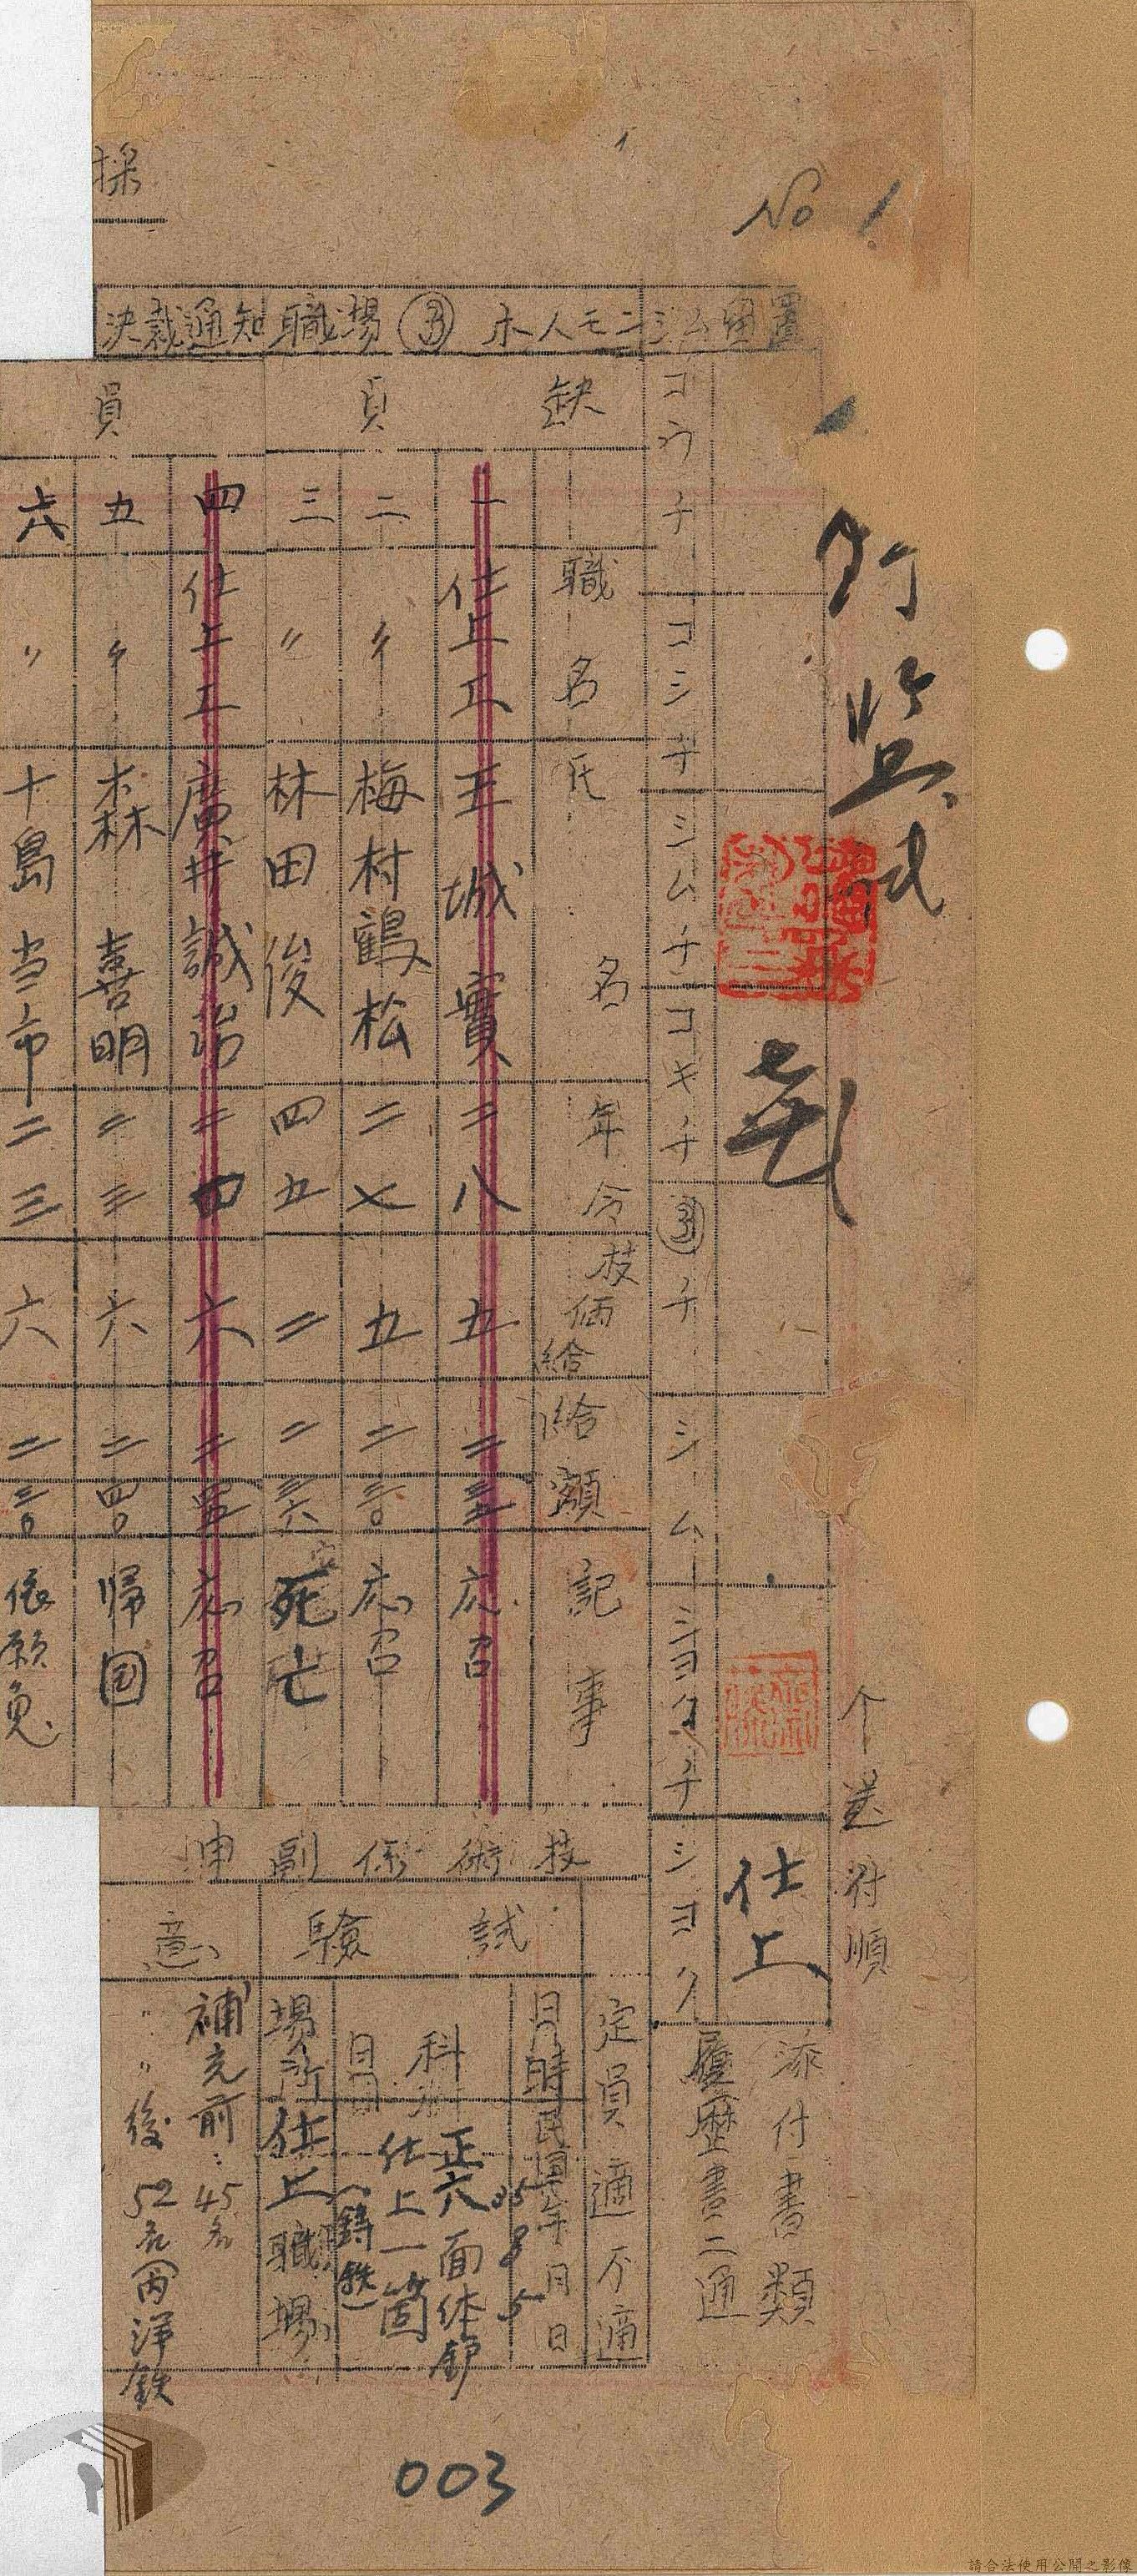 No 1
採
決裁通知 職場 ③ 本人モニシム
缺員
員
職名
氏名
年令
技価給
給額
記事
一 仕上工 玉城實 二八 五 二三五 応召
二 〃 梅村鶴松 二七 五 二三〇 応召
三 〃 林田俊 四五 二 二三六 死亡
四 仕上工 廣井誠治 二四 六 応召
五 〃 森喜明 二三 六 二四〇 帰国
六 〃 十島当市 二三 六 二三〇 依願免
コウチ
コシキ
シムチ
コキチ
③チ
シム
シヨクチ
シヨク
仕上
送付順
添付書類
履歴書二通
技術係副申
定員適不適
試驗
日時 民國35年8月5日
科目 正六面体 仕上一箇 (鋳鉄)
場所 仕上職場
意
補充前:45名
〃 〃 後 52名
003
請合法使用公開之影像